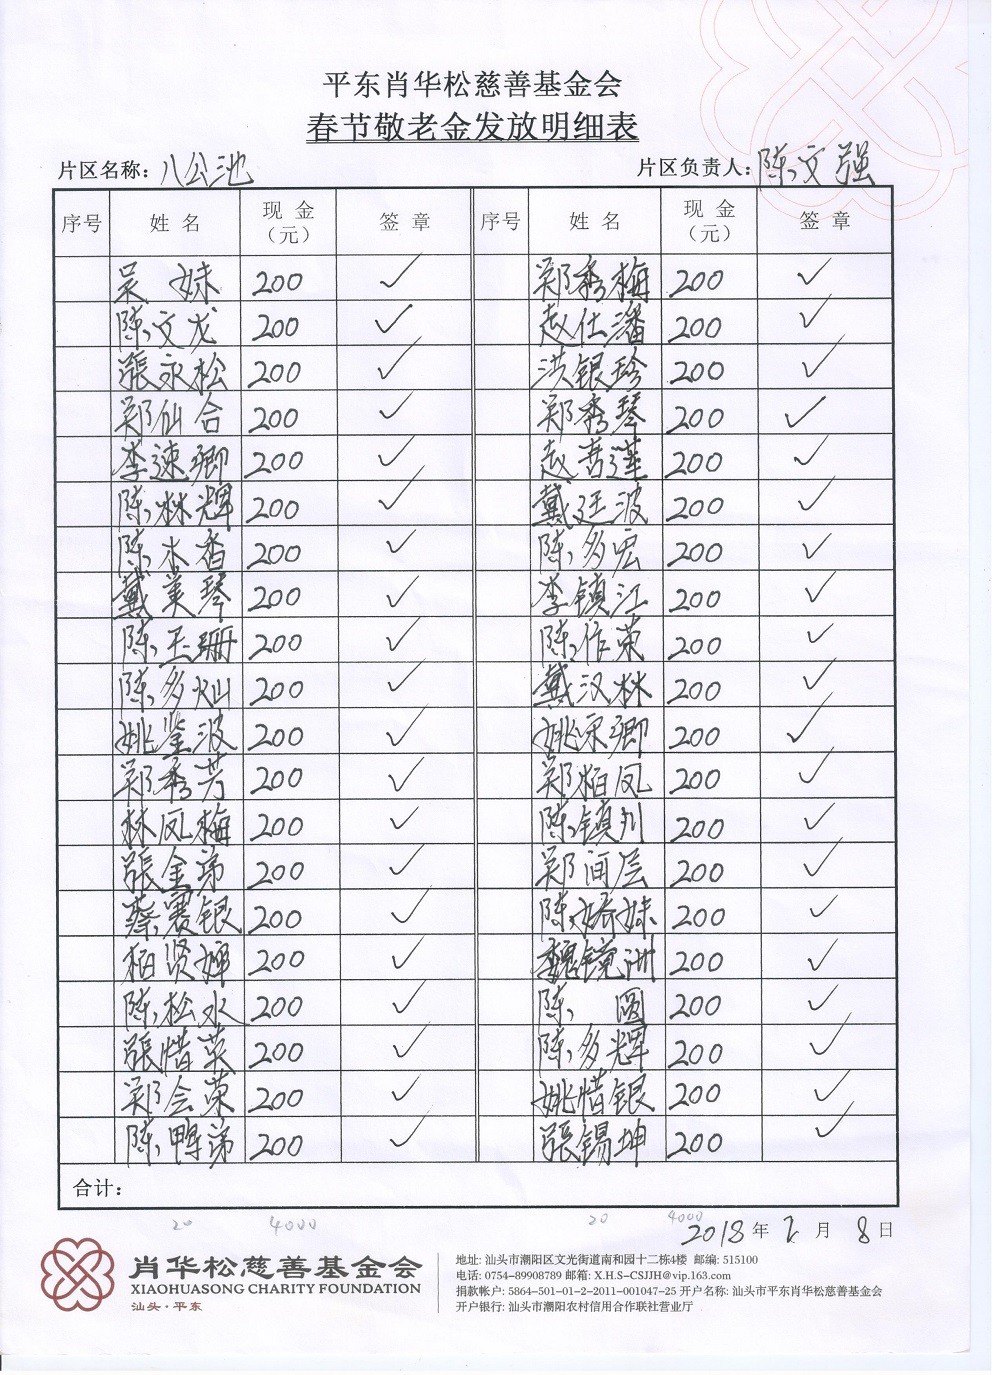 平东肖华松慈善基金会
春节敬老金发放明细表
片区名称：八公池 片区负责人：陈文强
序号 姓名 现金（元） 签章 序号 姓名 现金（元） 签章
吴妹 200 ✓ 郑秀梅 200 ✓
陈文龙 200 ✓ 赵仕潘 200 ✓
張永松 200 ✓ 洪银珍 200 ✓
郑仙合 200 ✓ 郑秀琴 200 ✓
李速卿 200 ✓ 赵善莲 200 ✓
陈林辉 200 ✓ 戴廷波 200 ✓
陈木香 200 ✓ 陈多宏 200 ✓
戴美琴 200 ✓ 李镇江 200 ✓
陈玉珊 200 ✓ 陈作荣 200 ✓
陈多灿 200 ✓ 戴汉林 200 ✓
姚鉴波 200 ✓ 姚宋卿 200 ✓
郑秀芳 200 ✓ 郑柏凤 200 ✓
林凤梅 200 ✓ 陈镇川 200 ✓
張金弟 200 ✓ 郑间层 200 ✓
蔡賽银 200 ✓ 陈娇妹 200 ✓
柏贤婵 200 ✓ 魏镜洲 200 ✓
陈松水 200 ✓ 陈圆 200 ✓
張惜英 200 ✓ 陈多辉 200 ✓
郑会荣 200 ✓ 姚惜银 200 ✓
陈鸭弟 200 ✓ 張锡坤 200 ✓
合计：
20 4000 20 4000
2018年2月8日
肖华松慈善基金会
XIAOHUASONG CHARITY FOUNDATION
汕头·平东
地址: 汕头市潮阳区文光街道南和园十二栋4楼 邮编: 515100
电话: 0754-89908789 邮箱: X.H.S-CSJJH@vip.163.com
捐款帐户: 5864-501-01-2-2011-001047-25 开户名称: 汕头市平东肖华松慈善基金会
开户银行: 汕头市潮阳农村信用合作联社营业厅